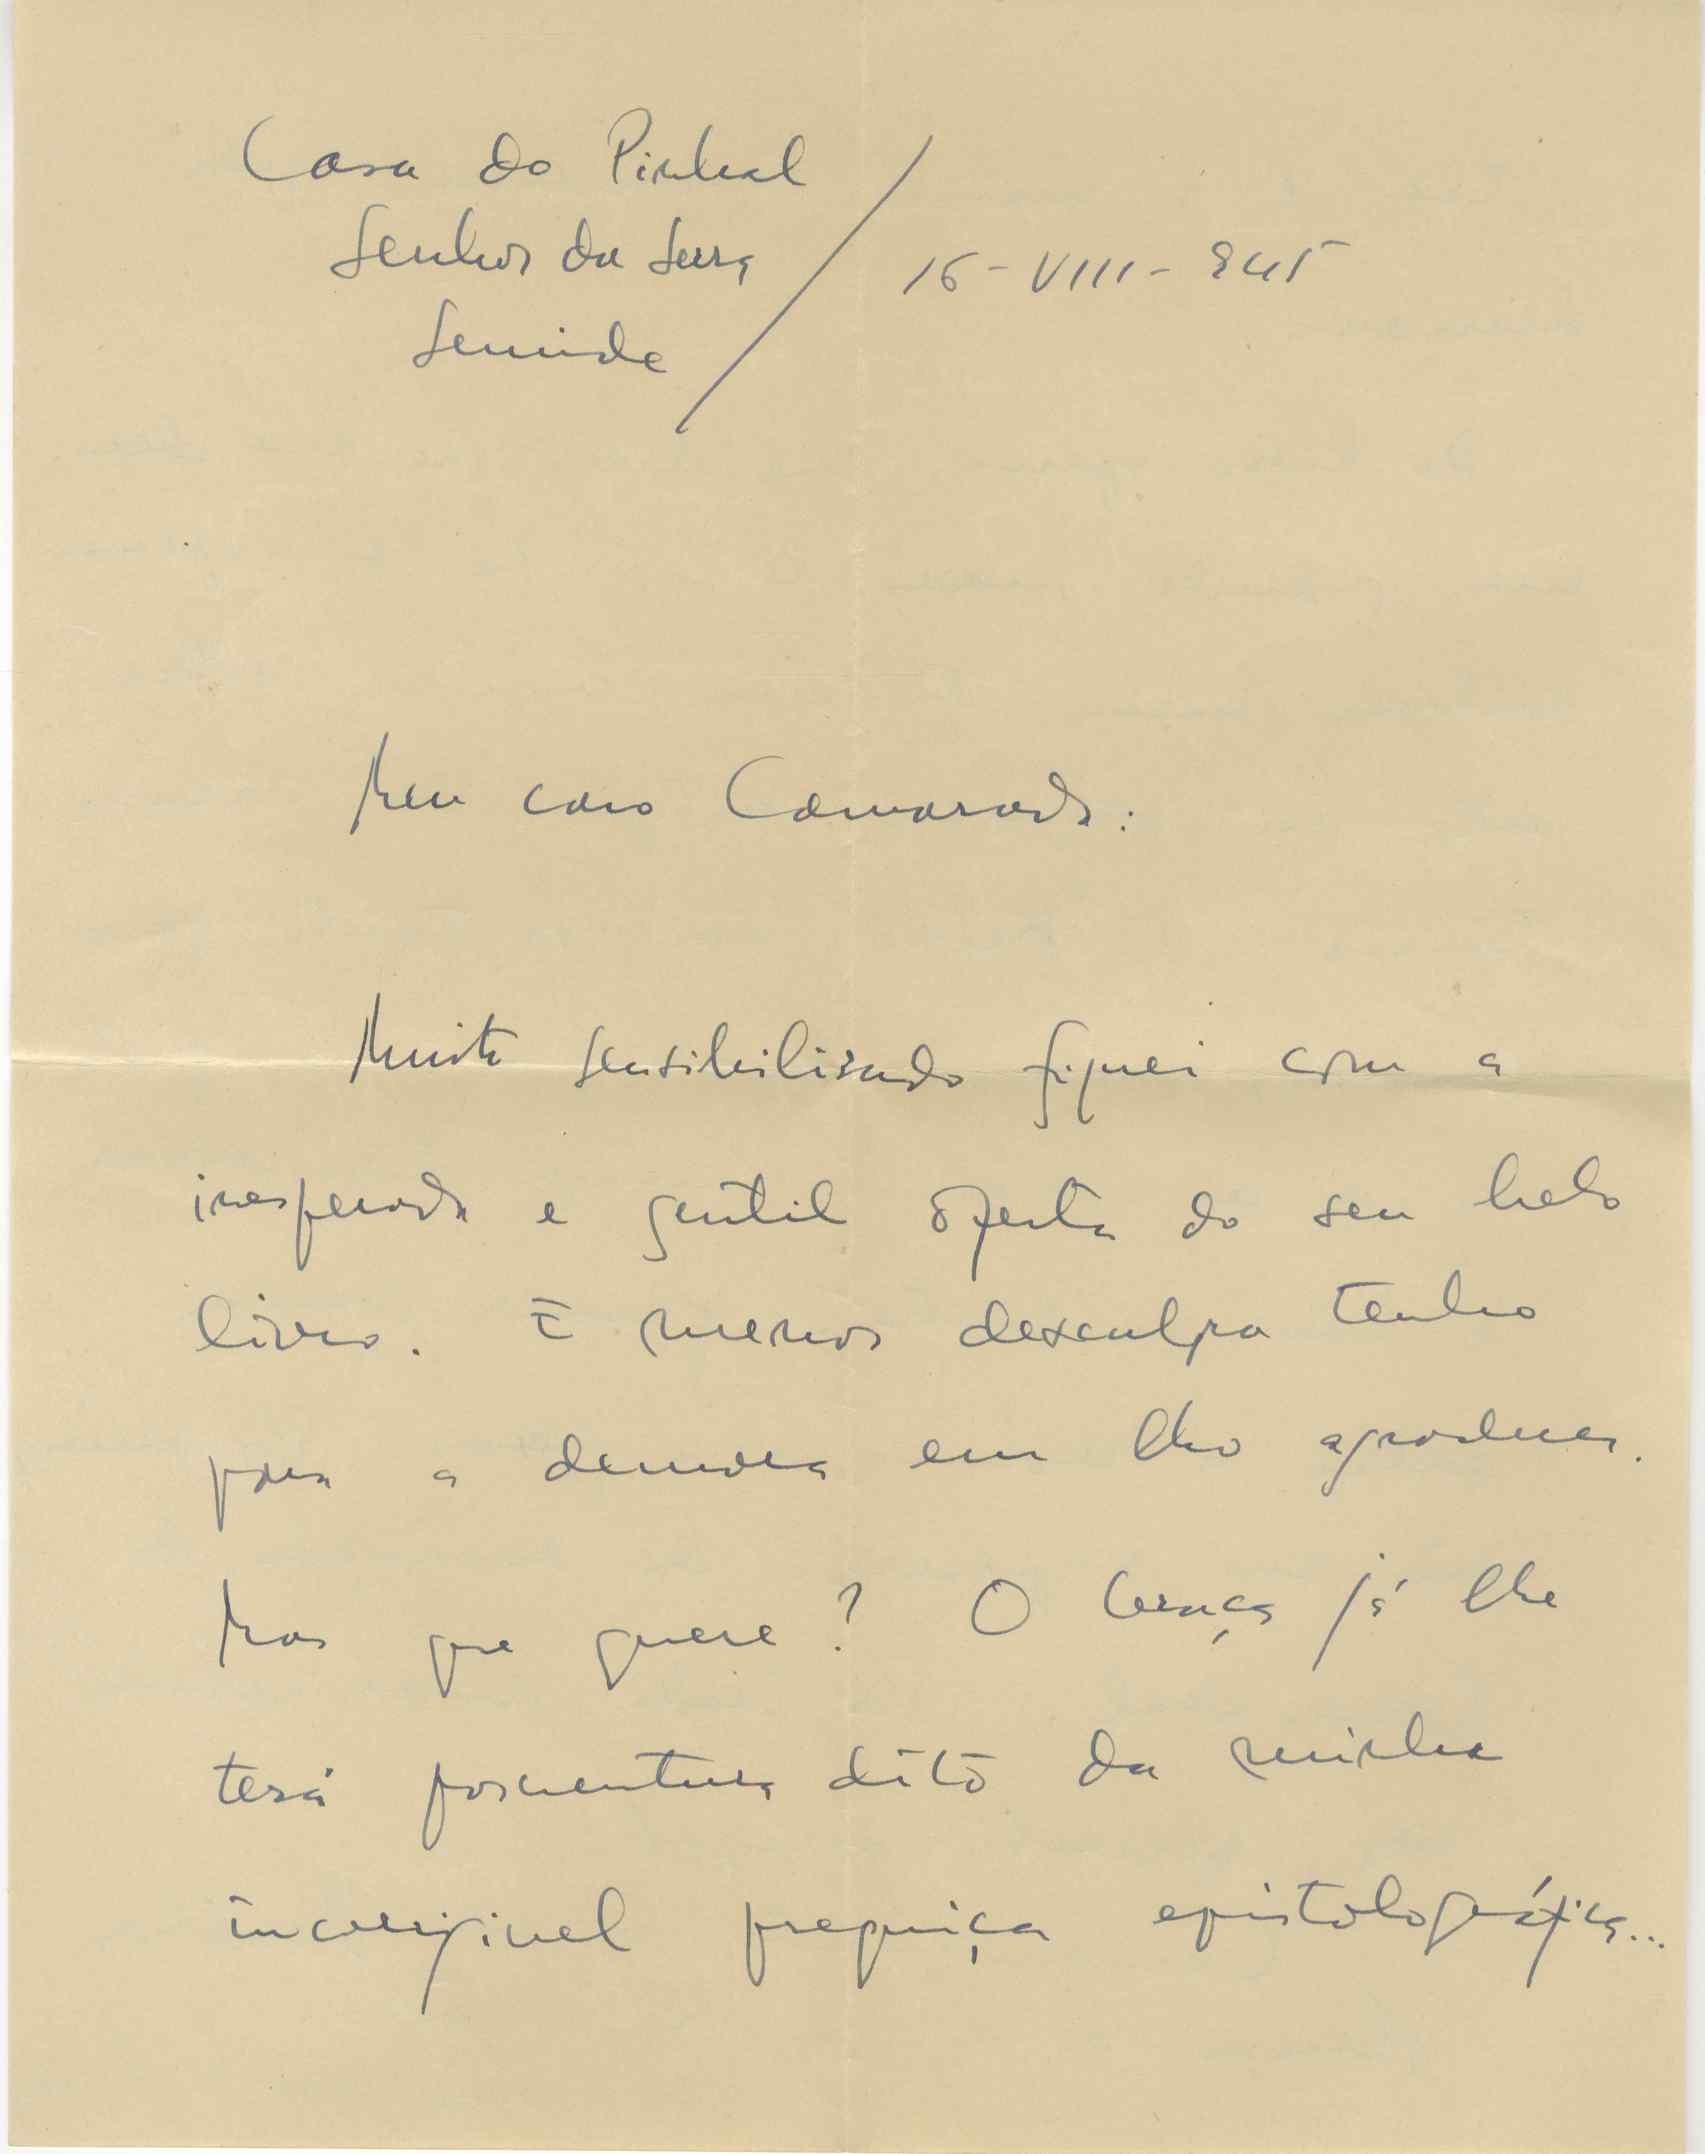 Casa do Pinhal
Senhor da Serra
Semide
16-VIII-945
Meu caro Camarada:
Muito sensibilisado fiquei com a
inesperada e gentil oferta do seu belo
livro. E menos desculpa tenho
para a demora em lho agradecer.
Mas que quere? O já lhe
terá porventura dito da minha
incorrigivel preguiça epistolográfica...